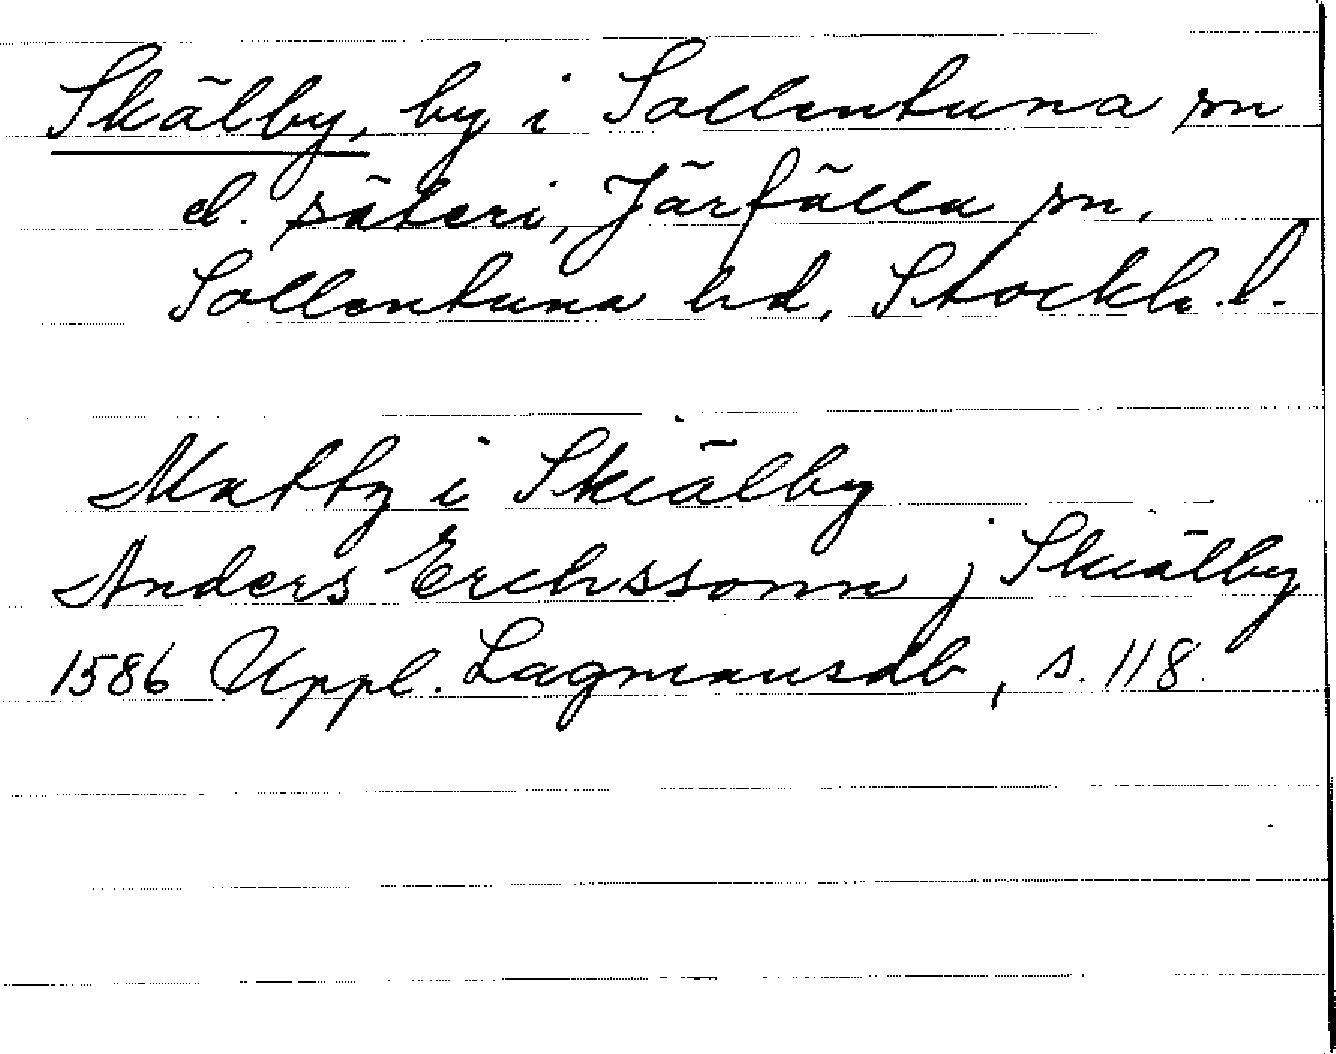 Skälby, by i Sollentuna sn
el. säteri, Järfälla sn,
Sollentuna hd, Stockh. l.
Mattz i Skiälby
Anders Erichssonn j Skiälby
1586 Uppl. Lagmansdb, s. 118.